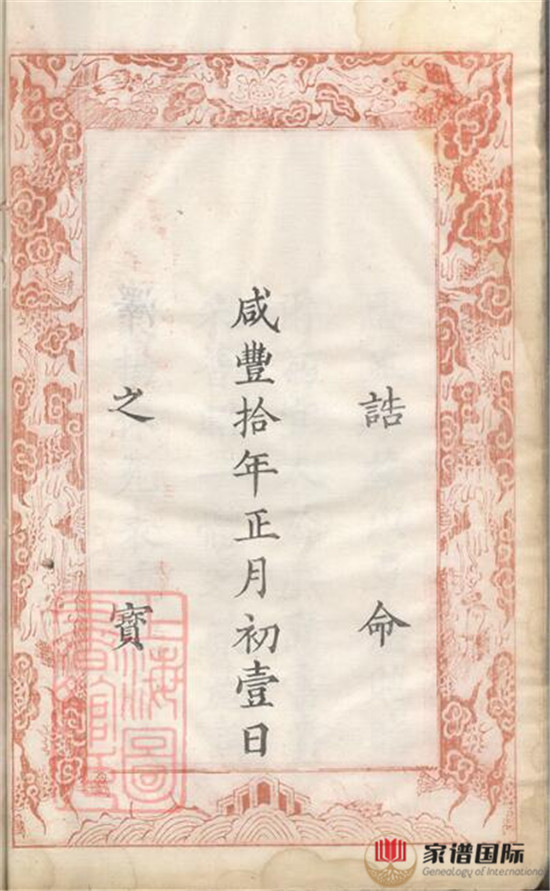 誥命
咸豐拾年正月初壹日
之寶
上海圖
書館藏
家谱国际
Genealogy of Internationa